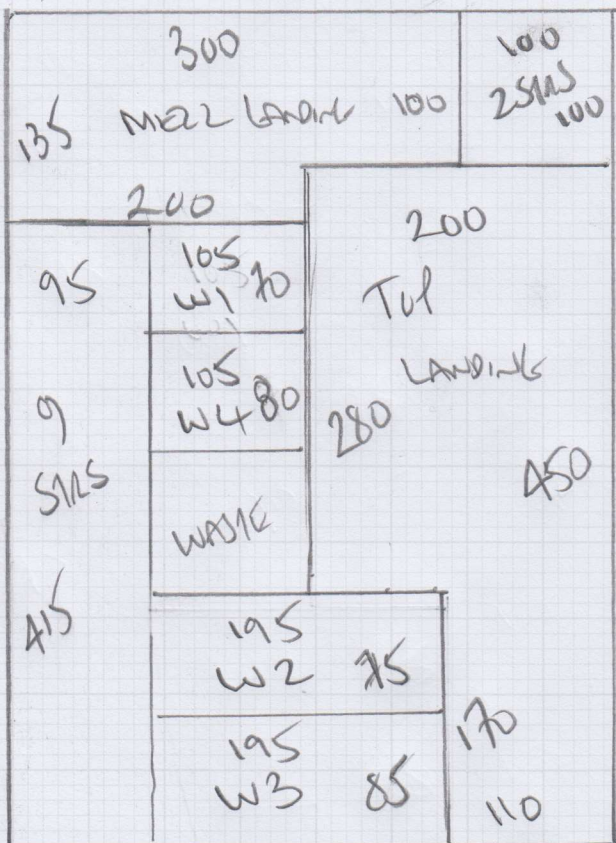 300
MEZZ LANDING 100
135
200
100
2 STRS
100
95
9
STRS
415
105
W1 70
105
W4 80
WASTE
200
TOP
LANDING
280
450
195
W2 75
195
W3 85
170
110